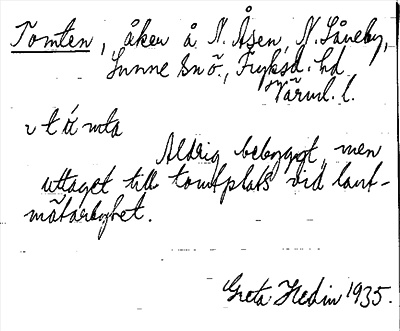 Tomten, åker å N. Åsen, N. Såneby,
Sunne snö., Fryksd. hd
Värml. l.
Aldrig bebyggt, men
uttaget till tomtplats vid lant-
mätarbythet.
Greta Hedin 1935.